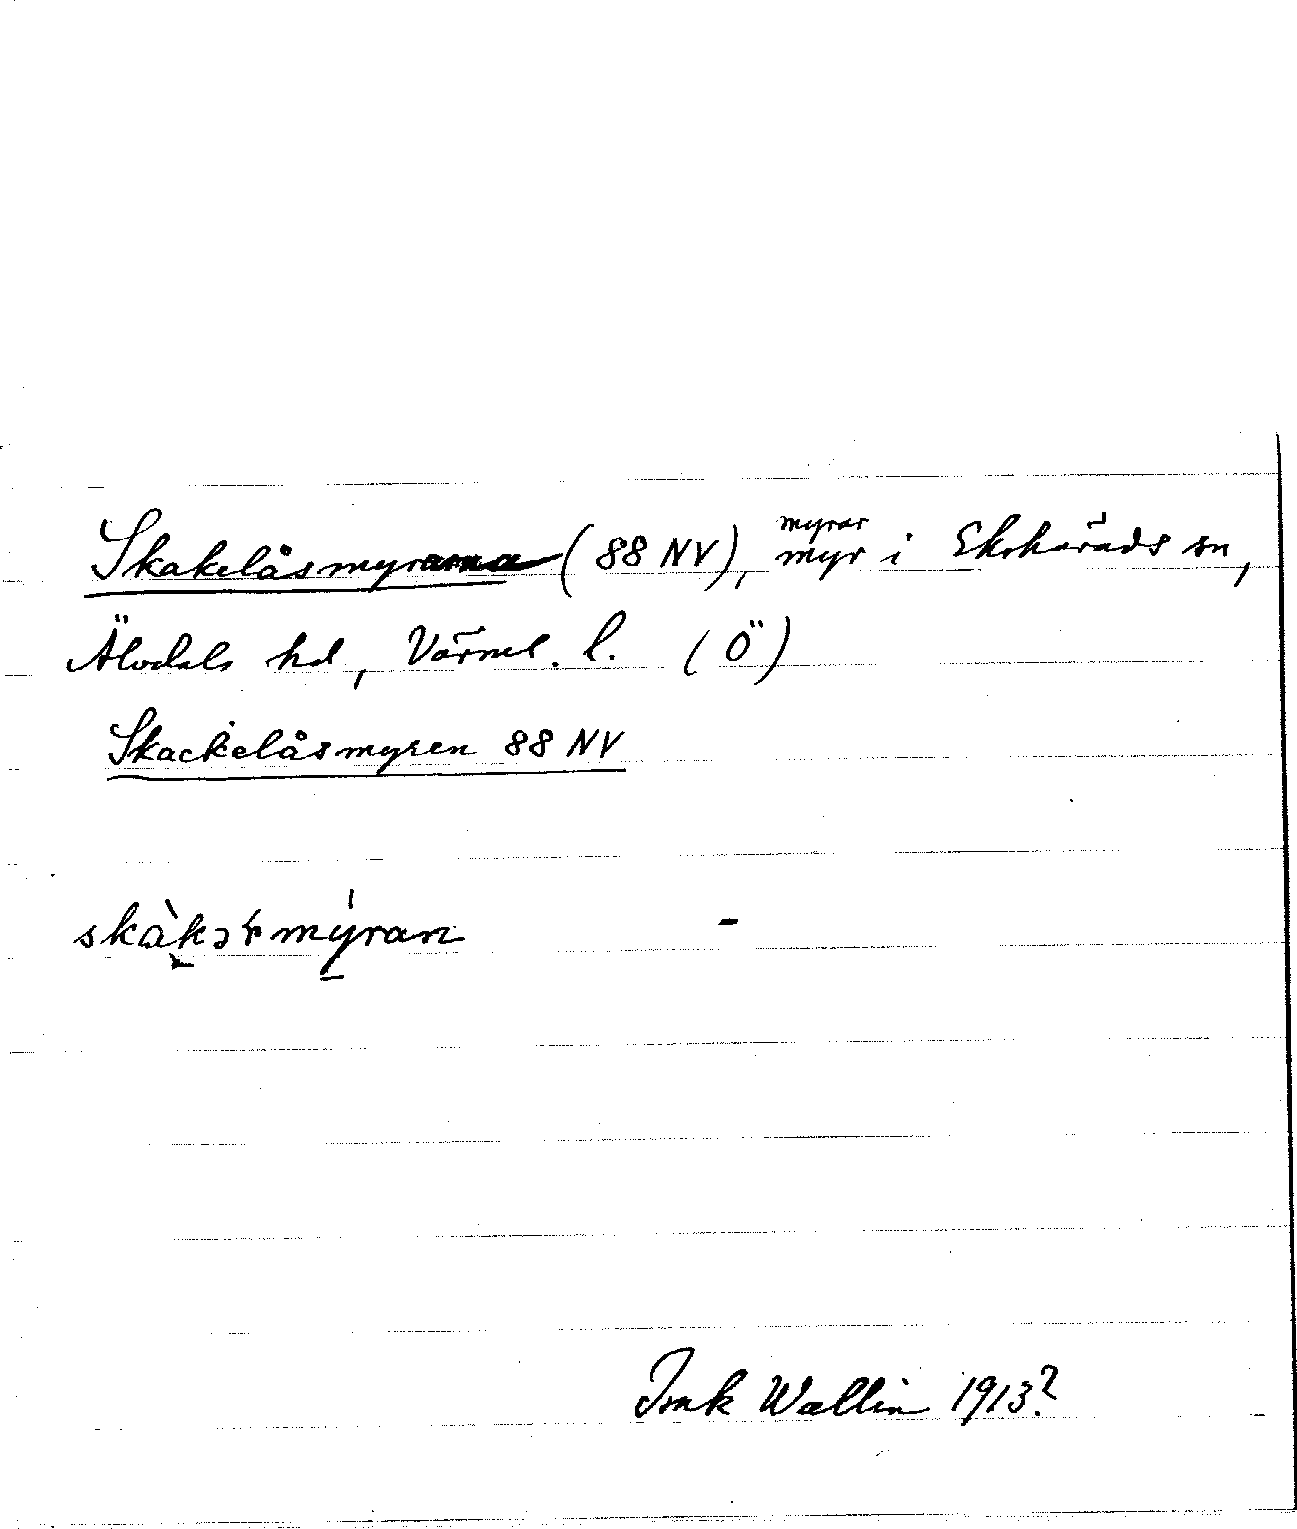 Skakelåsmyrarna (88 NV), myrar myr i Ekshärads sn,
Älvdals hd, Värml. l. (Ö)
Skackelåsmyren 88 NV
skàkəɫmýran -
Wallin 1913?